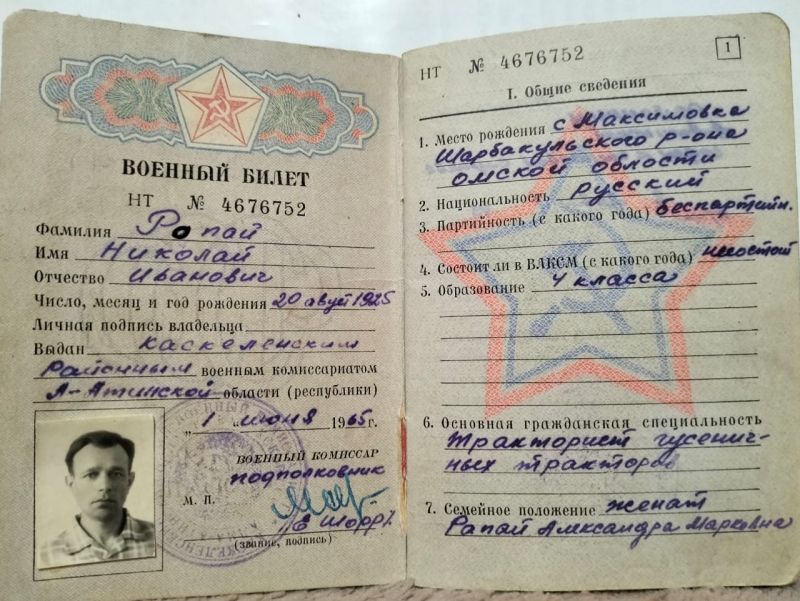 ВОЕННЫЙ БИЛЕТ
НТ № 4676752
Фамилия Ропай
Имя Николай
Отчество Иванович
Число, месяц и год рождения 20 август 1925
Личная подпись владельца
Выдан Каскеленским
Районным военным комиссариатом
А-Атинской области (республики)
„1" июня 1965г.
ВОЕННЫЙ КОМИССАР
подполковник
М. П.
(звание, подпись)
НТ № 4676752
1
I. Общие сведения
1. Место рождения с Максимовка
Шарбакульского р-она
омской области
2. Национальность русский
3. Партийность (с какого года) беспартийн.
4. Состоит ли в ВЛКСМ (с какого года) несостоит
5. Образование 4 класса
6. Основная гражданская специальность
Тракторист гусенич-
ных тракторов
7. Семейное положение женат
Рапай Александра Марковна